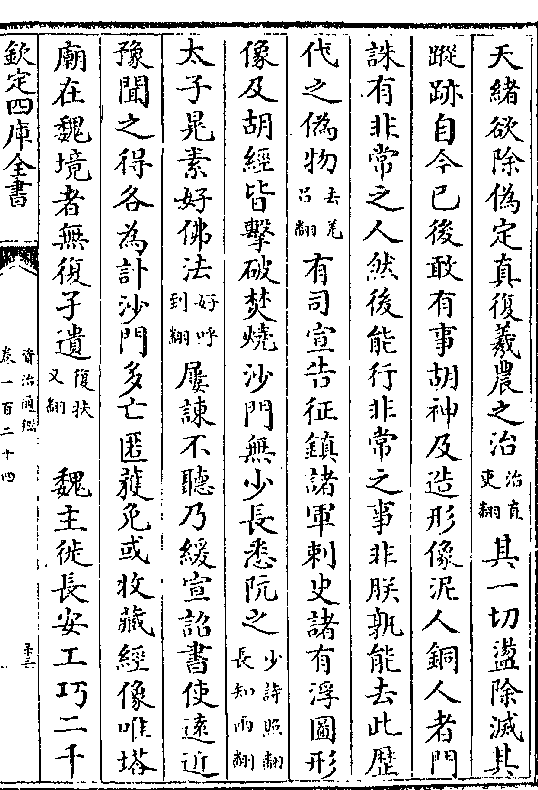 天緒欲除偽定真復羲農之治治直吏翻其一切盪除滅其
蹤跡自今已後敢有事胡神及造形像泥人銅人者門
誅有非常之人然後能行非常之事非朕孰能去此歷
代之偽物去羌呂翻有司宣告征鎮諸軍刺史諸有浮圖形
像及胡經皆擊破焚燒沙門無少長悉阬之少詩照翻長知兩翻
太子晃素好佛法好呼到翻屢諫不聽乃緩宣詔書使逺近
豫聞之得各為計沙門多亡匿獲免或收藏經像唯塔
廟在魏境者無復孑遺復扶又翻 魏主徙長安工巧二千
欽定四庫全書
資治通鑑
卷一百二十四